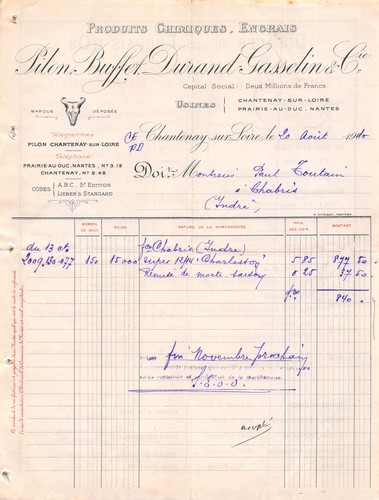 PRODUITS CHIMIQUES, ENGRAIS
Pilon, Buffet, Durand-Gasselin & Cie
Capital Social: Deux Millions de Francs
USINES
CHANTENAY-SUR-LOIRE
PRAIRIE-AU-DUC, NANTES
MARQUE DÉPOSÉE
Télégrammes:
PILON CHANTENAY-SUR-LOIRE
Téléphone:
PRAIRIE-AU-DUC, NANTES, No 3.19
CHANTENAY, No 8.48
CODES
A.B.C. 5e EDITION
LIEBER'S STANDARD
Chantenay sur Loire, le 20 Août 19
Doit Monsieur Paul Toulain
à Chabris
(Indre)
NOMBRE DE SACS
POIDS
NATURE DE LA MARCHANDISE
PRIX
MONTANT
du 13 ct
pr Chabris (Indre)
150 15000 super 12/14 "Charleston" 5 85 877 50
Remise de morte-saison 0 25 37 50
840 .
fin Novembre prochain
accepté